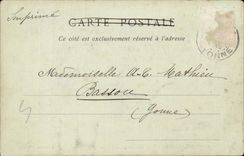 Imprimé
CARTE POSTALE
Ce côté est exclusivement réservé à l'adresse
YONNE
Mademoiselle A-C. Mathieu
Bassou
Yonne